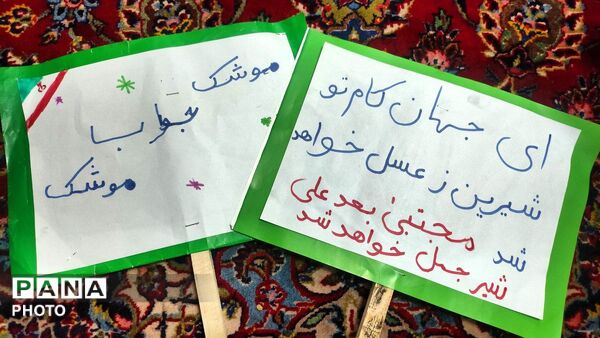 موشک
جواب
موشک
ای جهان کام تو
شیرین ز عسل خواهد
شد
مجتبیٰ بعد علی
شیر جمل خواهد شد
PANA
PHOTO